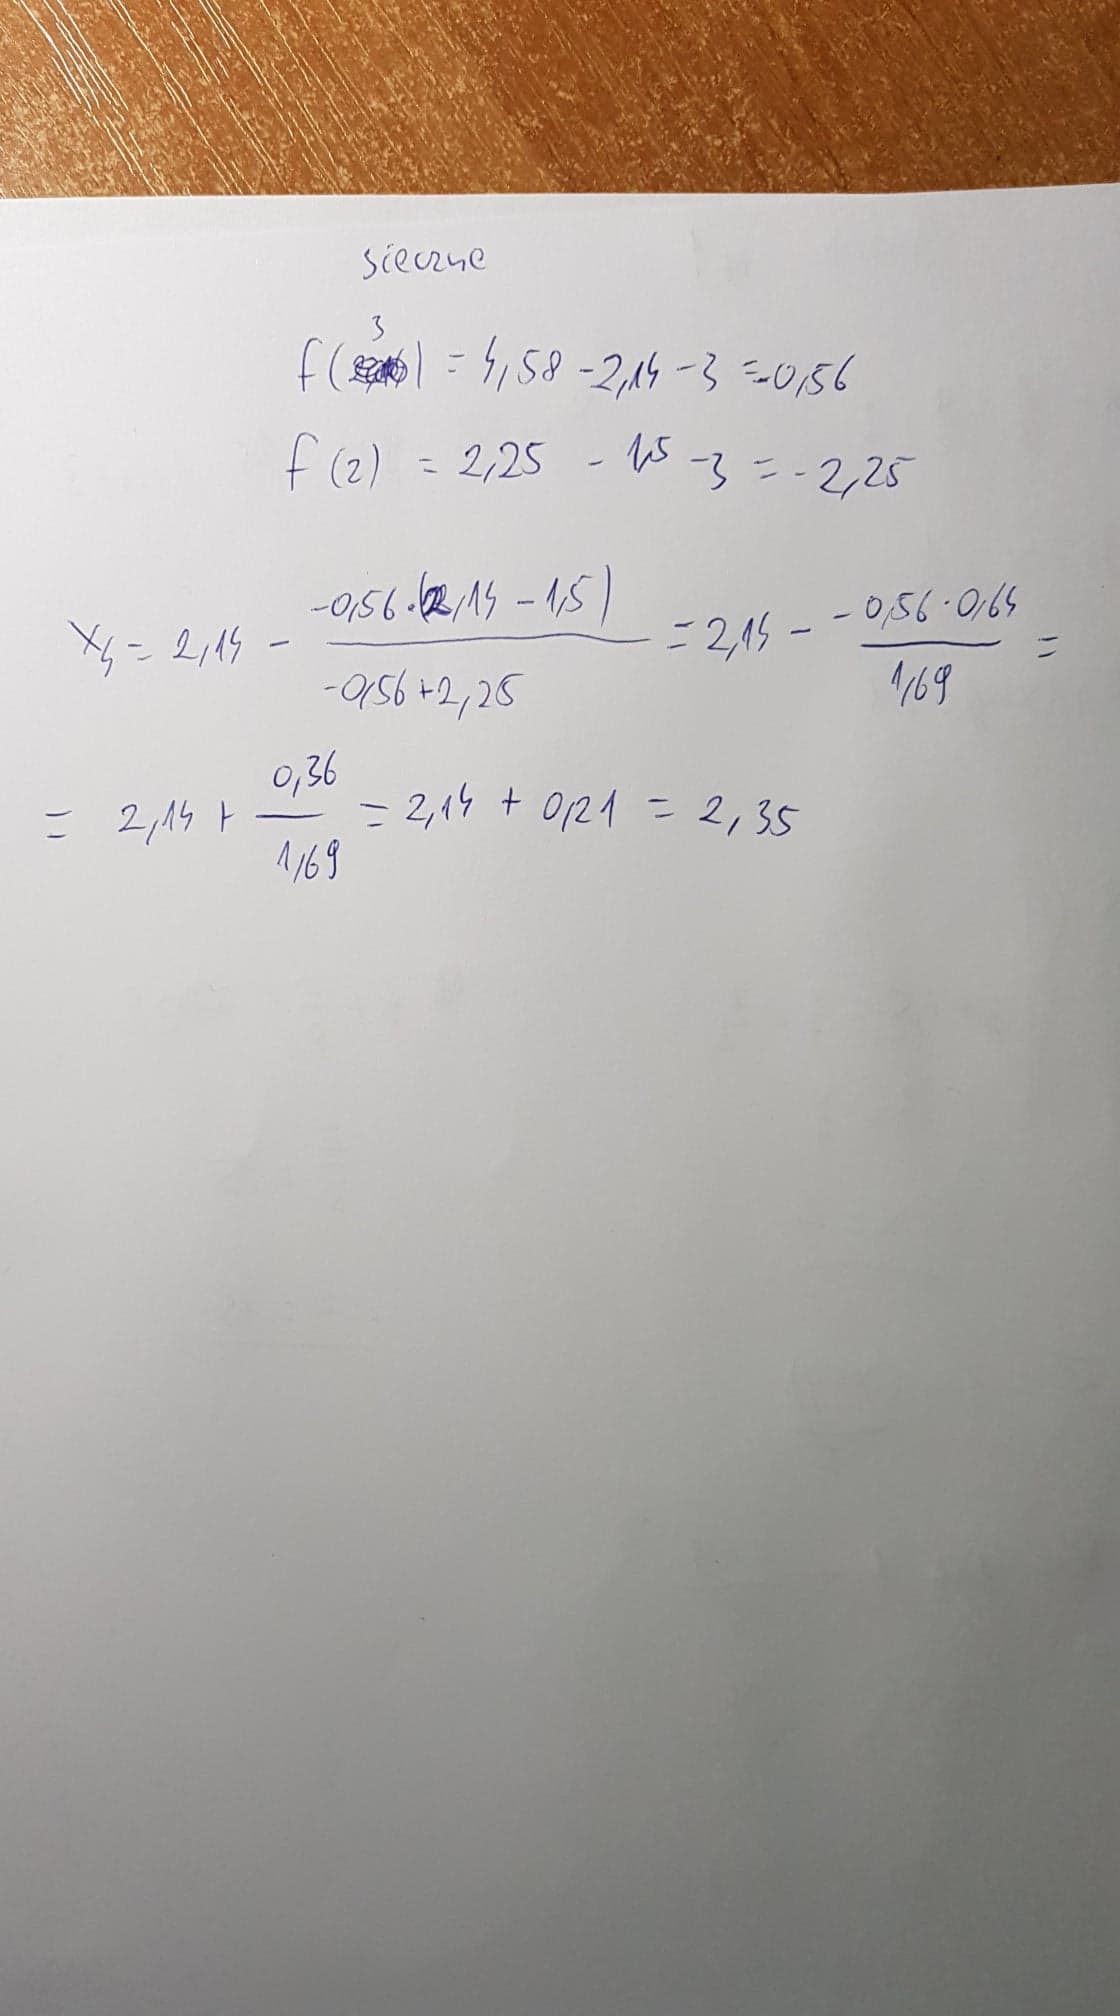 sieczne
f(3) = 4,58 - 2,14 - 3 = -0,56
f(2) = 2,25 - 1,5 - 3 = -2,25
x4 = 2,14 - -0,56·(2,14 - 1,5) / -0,56 + 2,25 = 2,14 - -0,56·0,64 / 1,69 =
= 2,14 + 0,36 / 1,69 = 2,14 + 0,21 = 2,35